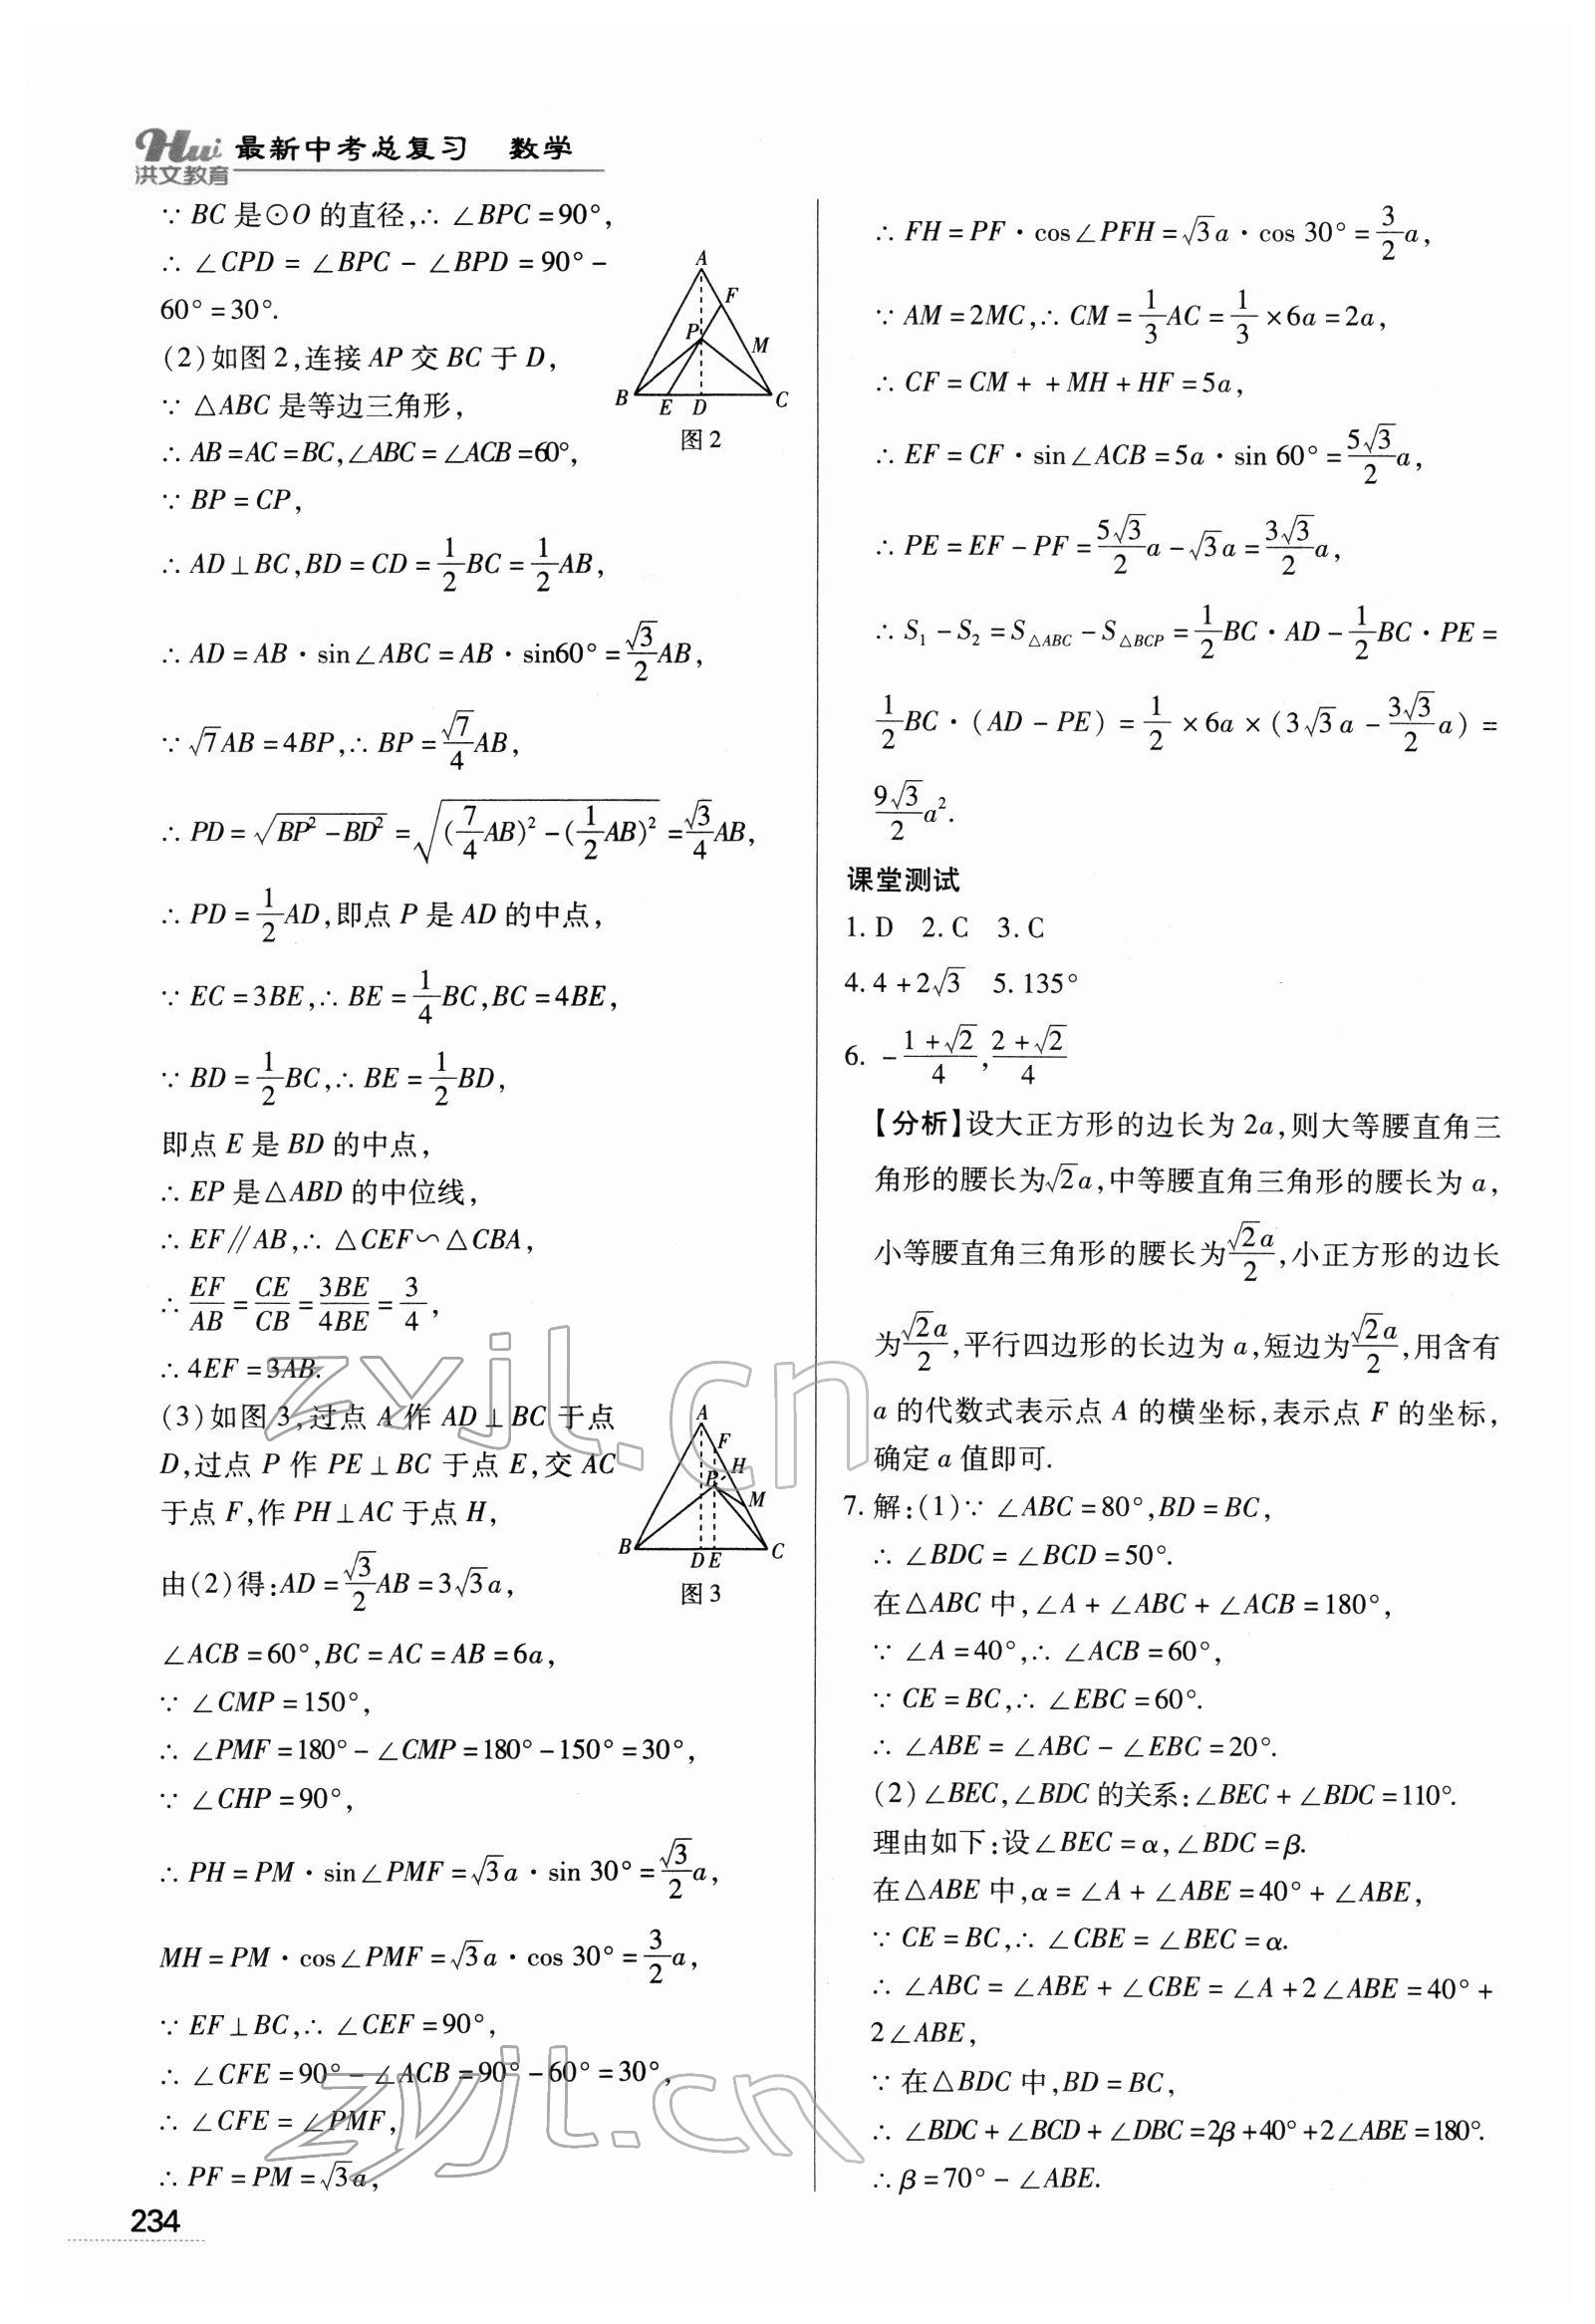 Hui 最新中考总复习 数学
洪文教育
∵ BC 是⊙O 的直径,∴ ∠BPC=90°,
∴ ∠CPD = ∠BPC - ∠BPD = 90° -
60° = 30°.
(2)如图 2,连接 AP 交 BC 于 D,
∵ △ABC 是等边三角形,
∴ AB=AC=BC,∠ABC=∠ACB=60°,
∵ BP = CP,
∴ AD⊥BC,BD=CD=1/2BC=1/2AB,
∴ AD=AB·sin∠ABC=AB·sin60°=√3/2AB,
∵ √7AB=4BP,∴ BP=√7/4AB,
∴ PD=√(BP²-BD²)=√((7/4AB)²-(1/2AB)²)=√3/4AB,
∴ PD=1/2AD,即点 P 是 AD 的中点,
∵ EC=3BE,∴ BE=1/4BC,BC=4BE,
∵ BD=1/2BC,∴ BE=1/2BD,
即点 E 是 BD 的中点,
∴ EP 是△ABD 的中位线,
∴ EF∥AB,∴ △CEF∽△CBA,
∴ EF/AB=CE/CB=3BE/4BE=3/4,
∴ 4EF=3AB.
(3)如图 3,过点 A 作 AD⊥BC 于点
D,过点 P 作 PE⊥BC 于点 E,交 AC
于点 F,作 PH⊥AC 于点 H,
由(2)得:AD=√3/2AB=3√3a,
∠ACB=60°,BC=AC=AB=6a,
∵ ∠CMP=150°,
∴ ∠PMF=180°-∠CMP=180°-150°=30°,
∵ ∠CHP=90°,
∴ PH=PM·sin∠PMF=√3a·sin 30°=√3/2a,
MH=PM·cos∠PMF=√3a·cos 30°=3/2a,
∵ EF⊥BC,∴ ∠CEF=90°,
∴ ∠CFE=90°-∠ACB=90°-60°=30°,
∴ ∠CFE=∠PMF,
∴ PF=PM=√3a,
A
F
P
M
B E D C
图 2
A
F
H
P
M
B D E C
图 3
∴ FH=PF·cos∠PFH=√3a·cos 30°=3/2a,
∵ AM=2MC,∴ CM=1/3AC=1/3×6a=2a,
∴ CF=CM++MH+HF=5a,
∴ EF=CF·sin∠ACB=5a·sin 60°=5√3/2a,
∴ PE=EF-PF=5√3/2a-√3a=3√3/2a,
∴ S₁-S₂=S△ABC-S△BCP=1/2BC·AD-1/2BC·PE=
1/2BC·(AD-PE)=1/2×6a×(3√3a-3√3/2a)=
9√3/2a².
课堂测试
1. D 2. C 3. C
4. 4+2√3 5. 135°
6. -(1+√2)/4,(2+√2)/4
【分析】设大正方形的边长为 2a,则大等腰直角三
角形的腰长为√2a,中等腰直角三角形的腰长为 a,
小等腰直角三角形的腰长为√2a/2,小正方形的边长
为√2a/2,平行四边形的长边为 a,短边为√2a/2,用含有
a 的代数式表示点 A 的横坐标,表示点 F 的坐标,
确定 a 值即可.
7. 解:(1)∵ ∠ABC=80°,BD=BC,
∴ ∠BDC=∠BCD=50°.
在△ABC 中,∠A+∠ABC+∠ACB=180°,
∵ ∠A=40°,∴ ∠ACB=60°,
∵ CE=BC,∴ ∠EBC=60°.
∴ ∠ABE=∠ABC-∠EBC=20°.
(2)∠BEC,∠BDC 的关系:∠BEC+∠BDC=110°.
理由如下:设∠BEC=α,∠BDC=β.
在△ABE 中,α=∠A+∠ABE=40°+∠ABE,
∵ CE=BC,∴ ∠CBE=∠BEC=α.
∴ ∠ABC=∠ABE+∠CBE=∠A+2∠ABE=40°+
2∠ABE,
∵ 在△BDC 中,BD=BC,
∴ ∠BDC+∠BCD+∠DBC=2β+40°+2∠ABE=180°.
∴ β=70°-∠ABE.
234
zyjl.cn
zyjl.cn